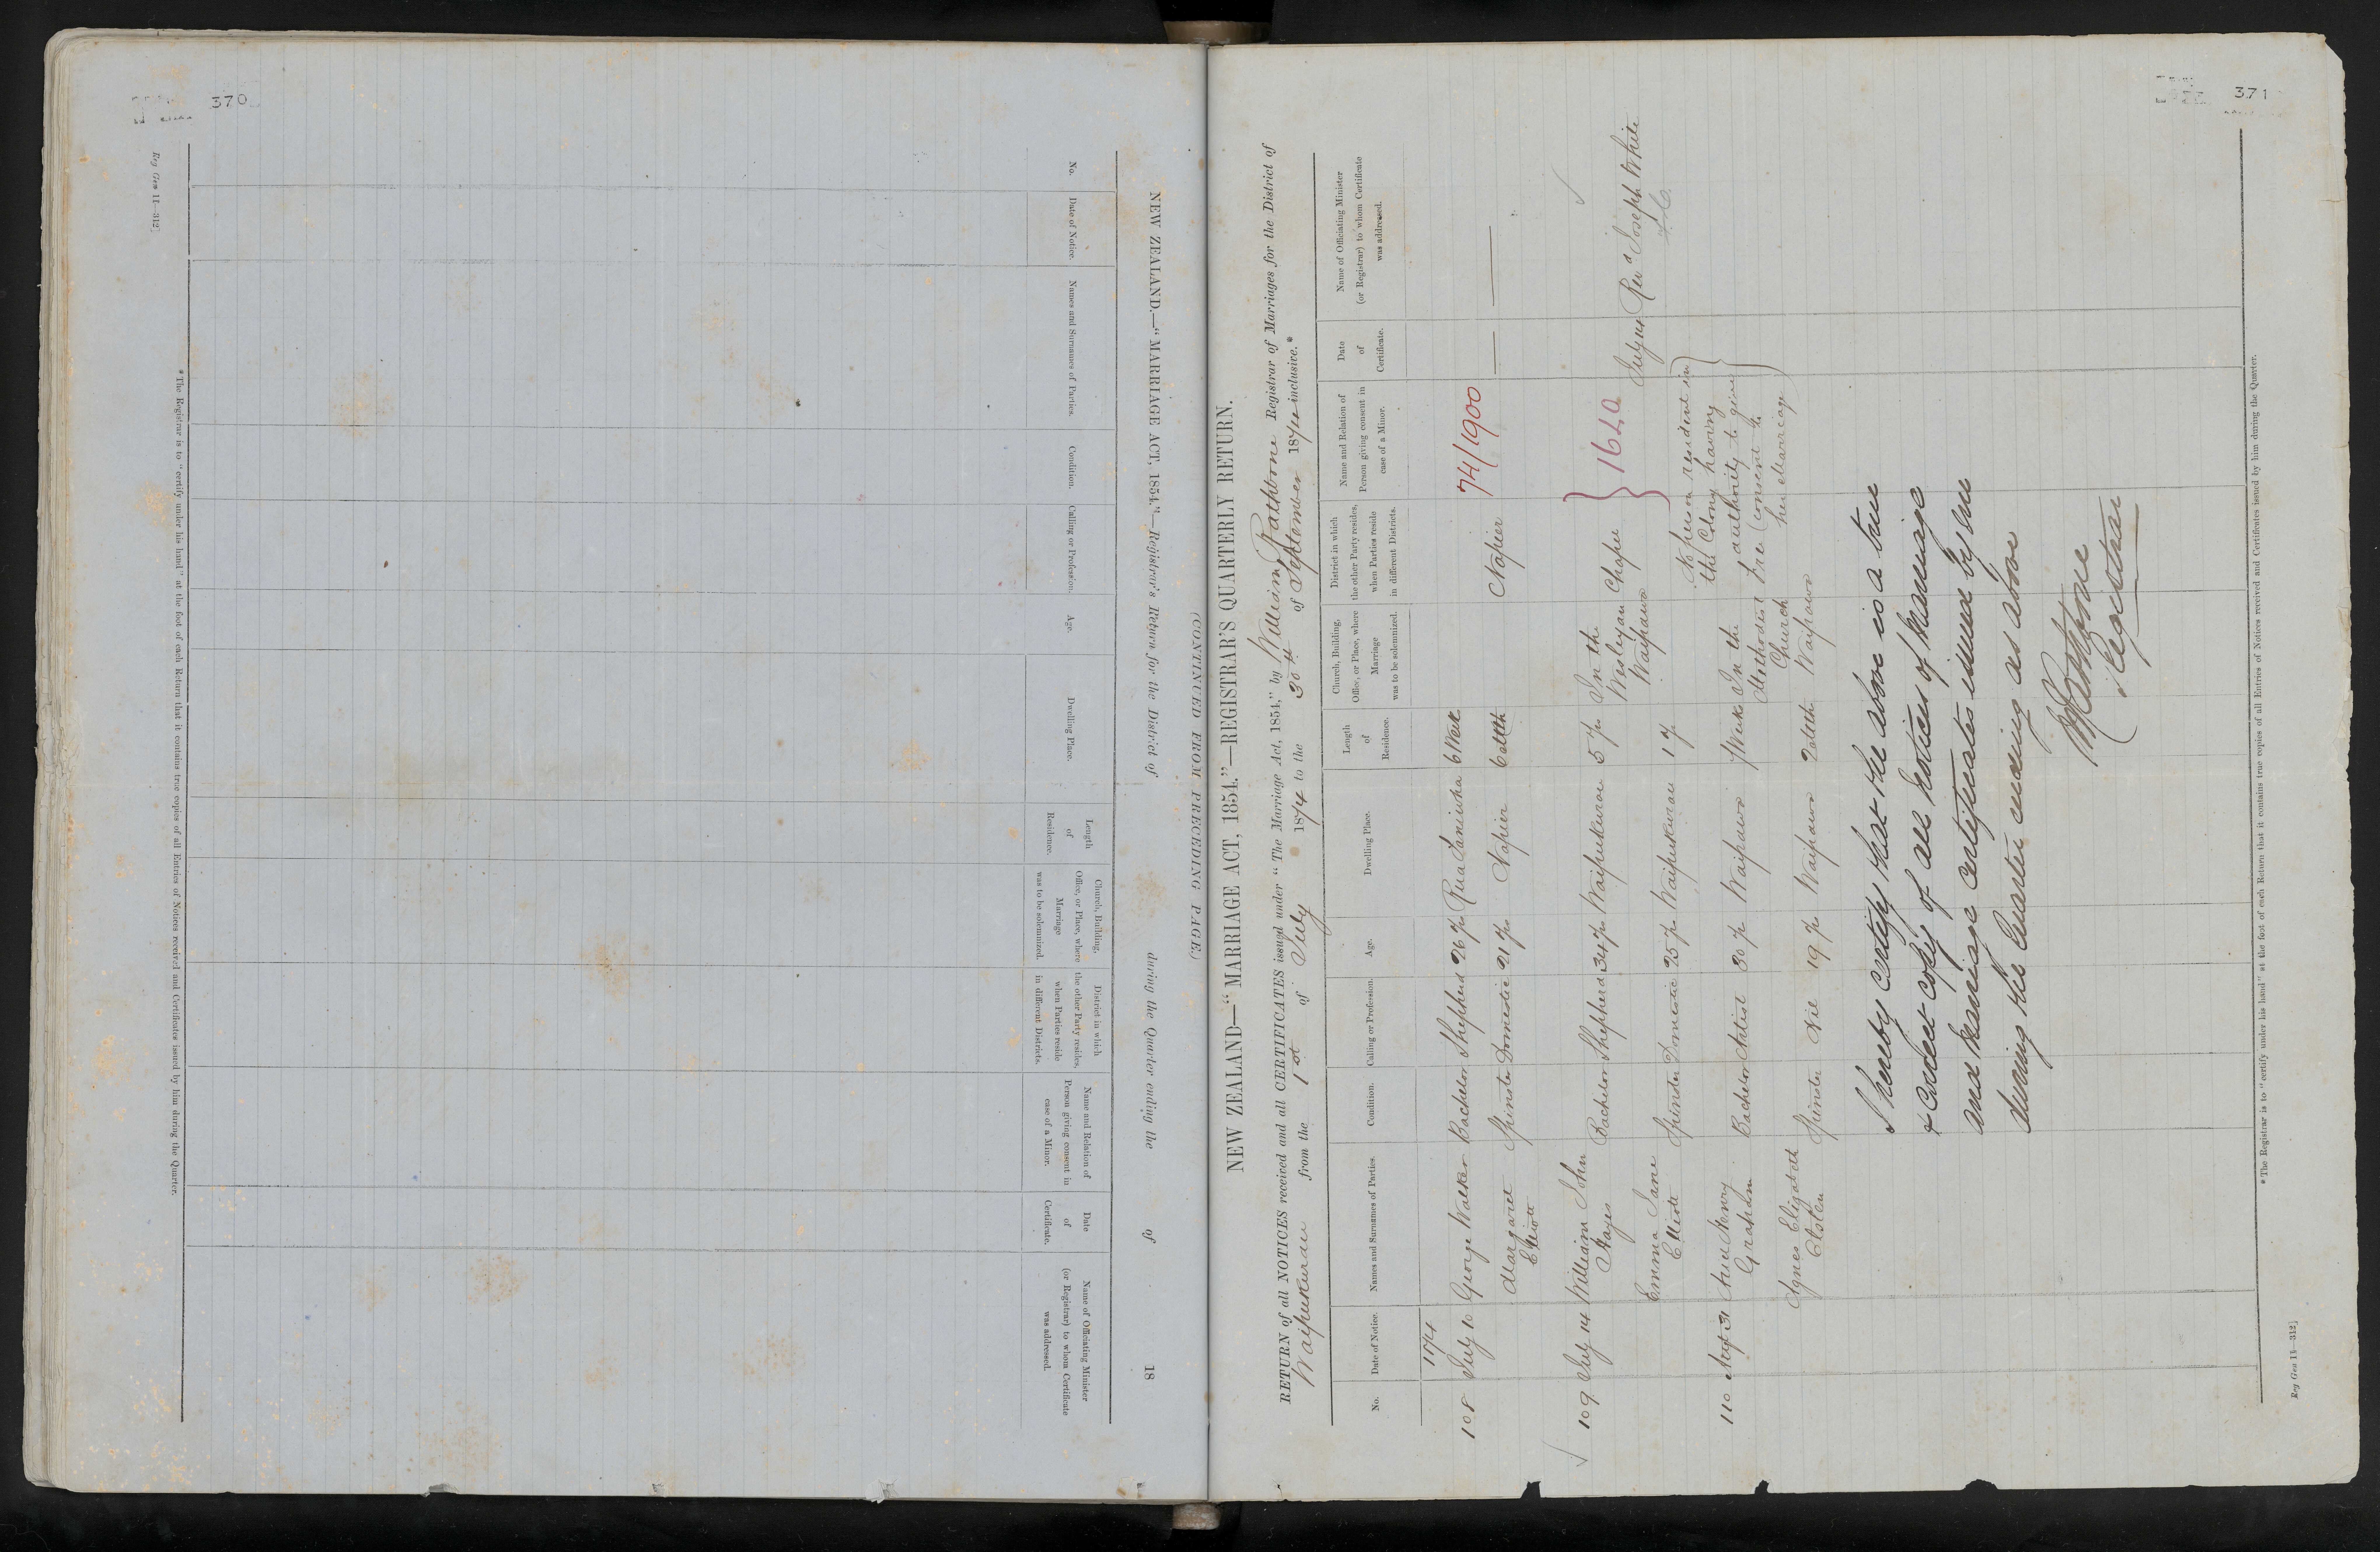 370
Reg Gen 11—312]
(CONTINUED FROM PRECEDING PAGE.)
NEW ZEALAND.—"MARRIAGE ACT, 1854."—Registrar's Return for the District of during the Quarter ending the of 18
No.
Date of Notice.
Names and Surnames of Parties.
Condition.
Calling or Profession.
Age.
Dwelling Place.
Length
of
Residence.
Church, Building,
Office, or Place, where
Marriage
was to be solemnized.
District in which
the other Party resides,
when Parties reside
in different Districts.
Name and Relation of
Person giving consent in
case of a Minor.
Date
of
Certificate.
Name of Officiating Minister
(or Registrar) to whom Certificate
was addressed.
*The Registrar is to "certify under his hand" at the foot of each Return that it contains true copies of all Entries of Notices received and Certificates issued by him during the Quarter.
371
NEW ZEALAND—"MARRIAGE ACT, 1854."—REGISTRAR'S QUARTERLY RETURN.
RETURN of all NOTICES received and all CERTIFICATES issued under "The Marriage Act, 1854," by William Rathbone Registrar of Marriages for the District of
Waipukurau from the 1st of July 1874 to the 30th of September 1874 inclusive.*
No.
Date of Notice.
Names and Surnames of Parties.
Condition.
Calling or Profession.
Age.
Dwelling Place.
Length
of
Residence.
Church, Building,
Office, or Place, where
Marriage
was to be solemnized.
District in which
the other Party resides,
when Parties reside
in different Districts.
Name and Relation of
Person giving consent in
case of a Minor.
Date
of
Certificate.
Name of Officiating Minister
(or Registrar) to whom Certificate
was addressed.
1874
108 July 10 George Walker Bachelor Shepherd 26 yrs Rua Taniwha 6 Week 74/1900
Margaret Spinster Domestic 21 yrs Napier Napier
Elliott
109 July 14 William John Bachelor Shepherd 34 yrs Waipukurau 5 yr In the
Hayes Wesleyan Chapel 1620 July 14 Revd Joseph White
Emma Jane Spinster Domestic 25 yrs Waipukurau 1 yr Waipawa
Elliott
110 Augt 31 Henry Bachelor Artist 30 yr Waipawa 7 Week In the
Graham Methodist Free
Church
Agnes Elizabeth Spinster Nil 19 yr Waipawa Waipawa
No person resident in
the Colony having
authority to give
consent to
her Marriage
I hereby certify that the above is a true
& correct copy of all notices of Marriage
and Marriage Certificates issued by me
during the Quarter ending as above
W Rathbone
Registrar
*The Registrar is to "certify under his hand" at the foot of each Return that it contains true copies of all Entries of Notices received and Certificates issued by him during the Quarter.
Reg Gen 11—312]